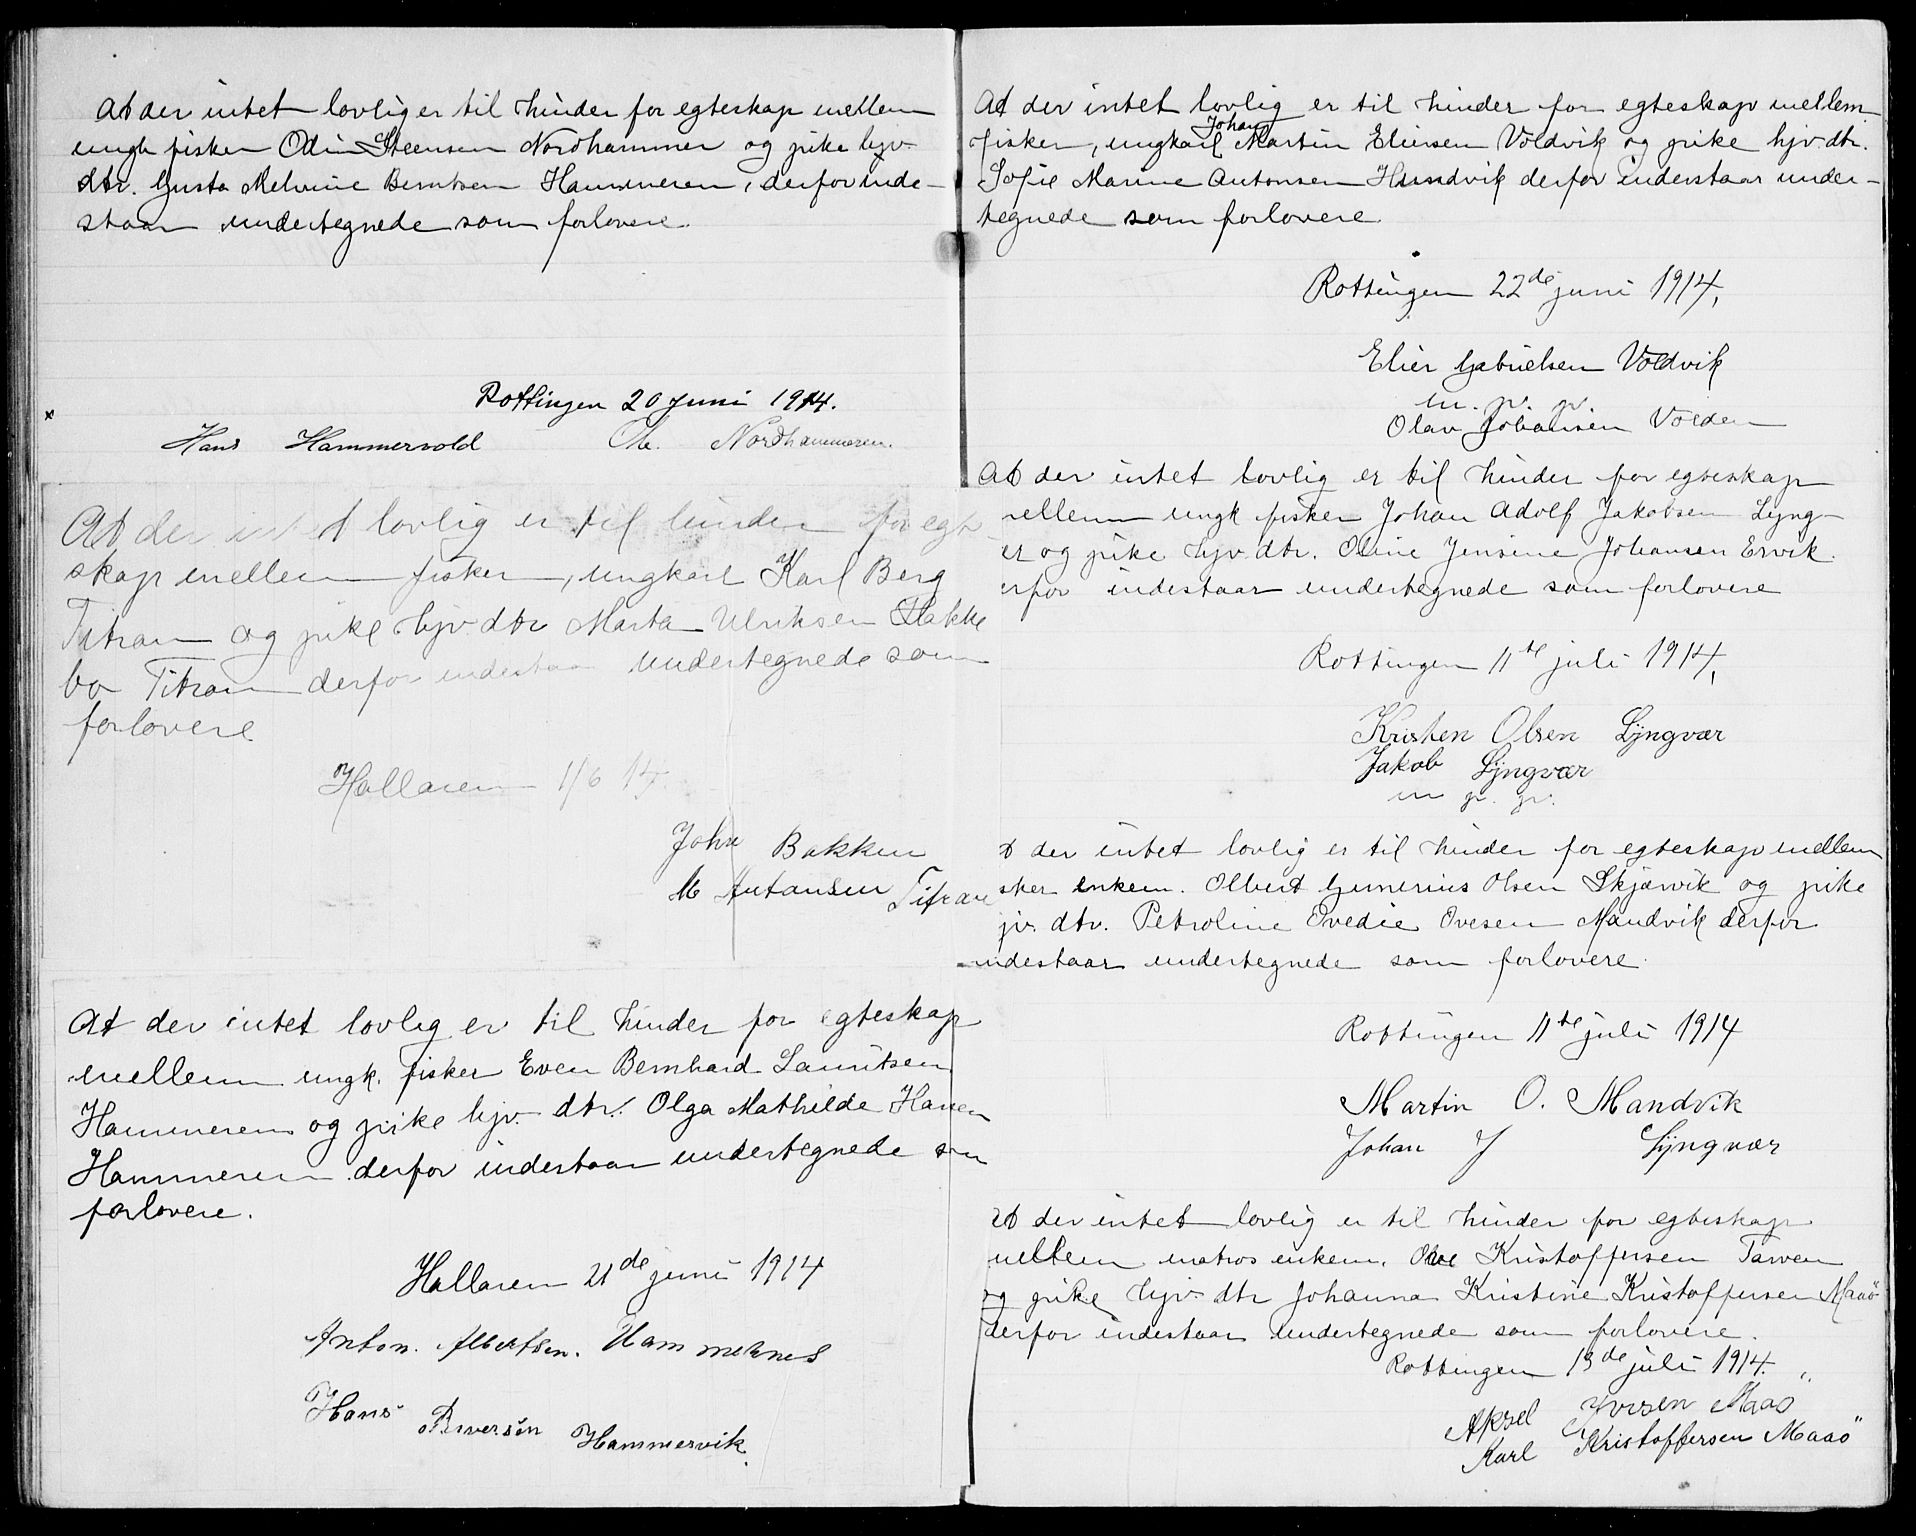 At der intet lovlig er til hinder for egteskap mellem
ungk fisker Odin Steensen Nordhammer og pike hjv.
dtr. Gusta Melvine Berntsen Hammeren, derfor inde-
staar undertegnede som forlovere.
Rottingen 20 juni 1914.
Hans Hammervold Chr. Nordhammeren.
At der intet lovlig er til hinder for egte
skap mellem fisker, ungkarl Karl Berg
Titran og pike hjv. dtr Marta Ulriksen Hakke
bo Titran derfor indestaar undertegnede som
forlovere
Hallaren 1/6 14.
John Bakken
M Antonsen Titran
At der intet lovlig er til hinder for egteskap
mellem ungk. fisker Even Bernhard Lauritsen
Hammeren og pike hjv. dtr. Olga Mathilde Hansen
Hammeren derfor indestaar undertegnede som
forlovere.
Hallaren 21de juni 1914
Anton. Albertsen. Hammernes
Hans Iversen Hammervik.
At der intet lovlig er til hinder for egteskap mellem
Johan
fisker, ungkarl Martin Eliersen Voldvik og pike hjv. dtr.
Sofie Marine Antonsen Hundvik derfor inderstaar under-
tegnede som forlovere.
Rottingen 22de juni 1914,
Elier Gabrielsen Voldvik
m. p. p.
Olav Johansen Volden
At der intet lovlig er til hinder for egteskap
mellem ungk fisker Johan Adolf Jakobsen Lyng-
er og pike hjv. dtr. Oline Jensine Johansen Ervik.
erfor indestaar undertegnede som forlovere
Rottingen 11te juli 1914,
Kristen Olsen Lyngvær
Jakob Lyngvær
m p. p.
t der intet lovlig er til hinder for egteskap mellem
sker enkem. Olbert Gunerius Olsen Skjærvik og pike
jv. dtr. Petroline Ovedie Ovesen Mandvik derfor
indestaar undertegnede som forlovere.
Rottingen 11te juli 1914
Martin O. Mandvik
Johan J Lyngvær
At der intet lovlig er til hinder for egteskap
mellem matros enkem. Ole Kristoffersen Tarven
og pike hjv. dtr Johanna Kristine Kristoffersen Maaö
derfor indestaar undertegnede som forlovere.
Rottingen 13de juli 1914.
Aksel Iversen Maaö
Karl Kristoffersen Maaö